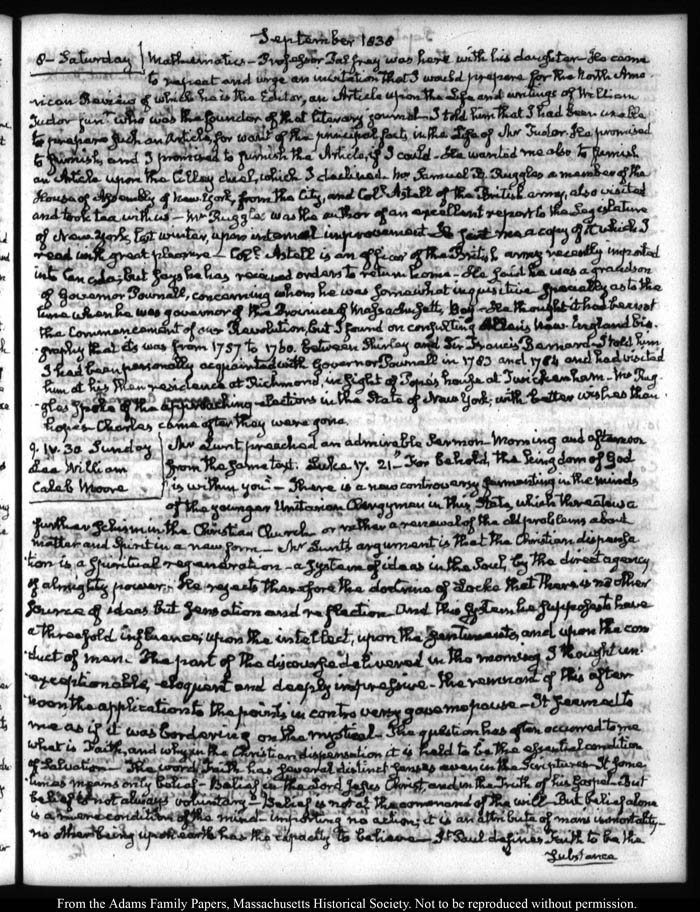 September 1838
8 - Saturday / Mathematics - Professor Palfrey was here with his daughter - He came
to repeat and urge an invitation that I would prepare for the North Ame-
rican Review of which he is the Editor, an Article upon the Life and writings of William
Tudor junr. who was the founder of that literary journal - I told him that I had been unable
to prepare such an Article, for want of the principal facts in the Life of Mr Tudor. He promised
to furnish, and I promised to furnish the Article, if I could - He wanted me also to furnish
an Article upon the Cilley duel, which I declined. Mr. Samuel B. Ruggles a member of the
House of Assembly of New York, from the City, and Coll. Astell of the British army, also visited
and took tea with us - Mr Ruggles was the author of an excellent report to the Legislature
of New York, last winter, upon internal improvement. He sent me a copy of it which I
read with great pleasure - Coll. Astell is an officer of the British army recently imported
into Canada; but says he has received orders to return home - He said he was a grandson
of Governor Pownall, concerning whom he was somewhat inquisitive specially as to the
time when he was governor of the Province of Massachusetts Bay - He thought it had been at
the Commencement of our Revolution, but I found on consulting Allen's New England bio-
graphy that it was from 1757 to 1760. between Shirley and Sir Francis Bernard - I told him
I had been personally acquainted with Governor Pownall in 1783 and 1784 and had visited
him at his then residence at Richmond, in sight of Pope's house at Twickenham - Mr Rug-
gles spoke of the approaching elections in the State of New York; with better wishes than
hopes. Charles came after they were gone.
9. IV. 30 Sunday
Lee William
Caleb Moore
Mr Lunt preached an admirable Sermon - Morning and afternoon
from the same text. Luke 17. 21 "For behold, the kingdom of God
is within you" - There is a new controversy fermenting in the minds
of the younger Unitarian Clergymen in this State, which threatens a
further schism in the Christian Church or rather a renewal of the old problems about
matter and Spirit in a new form - Mr Lunt's argument is that the Christian dispensa-
tion is a Spiritual regeneration - a System of ideas in the Soul, by the direct agency
of almighty power; He rejects therefore the doctrine of Locke that there is no other
source of ideas but sensation and reflection. And this System he supposes to have
a threefold influence; upon the intellect, upon the sentiments, and upon the con-
duct of men. The part of the discourse delivered in the morning I thought un-
exceptionable, eloquent and deeply impressive. The remnant of this after-
noon, the application to the points in controversy gave me pause - It seemed to
me as if it was bordering on the mystical. The question has often occurred to me
what is Faith, and why in the Christian dispensation it is held to be the essential condition
of Salvation - The word Faith has several distinct senses even in the Scriptures - It some
times means only belief - Belief in the Lord Jesus Christ, and in the Truth of his Gospel - But
belief is not always voluntary - Belief is not at the command of the will - But belief alone
is a mere condition of the mind - importing no action; it is an attribute of man's immortality -
no other being upon earth has the capacity to believe - St Paul defines Faith to be the
Substance
From the Adams Family Papers, Massachusetts Historical Society. Not to be reproduced without permission.